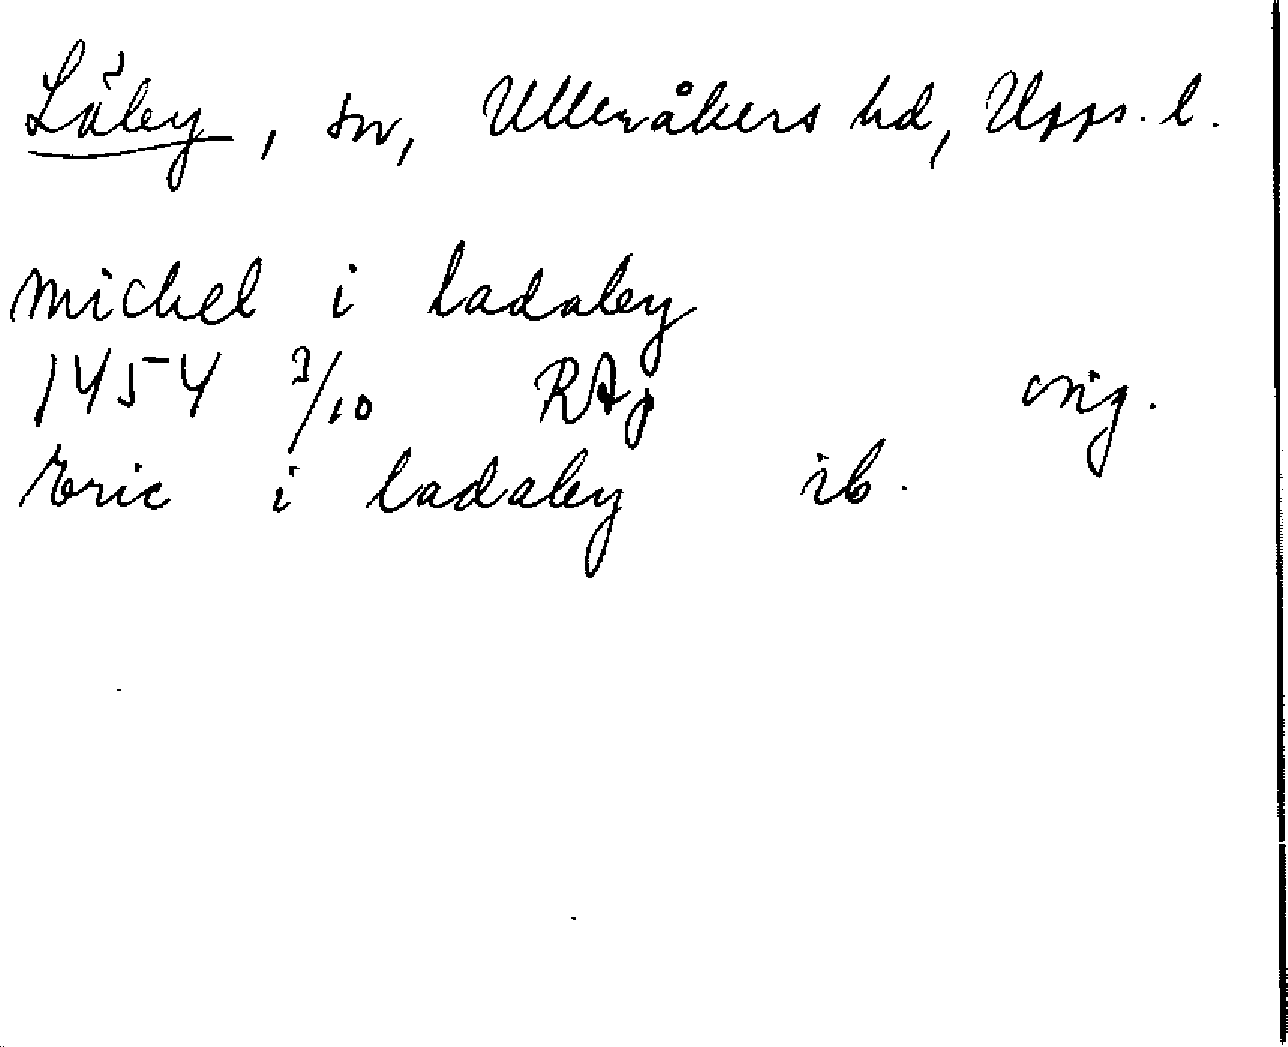 Låby, sn, Ulleråkers hd, Upps. l.
michel i ladaby
1454 3/10 RAp orig.
Eric i ladaby ib.